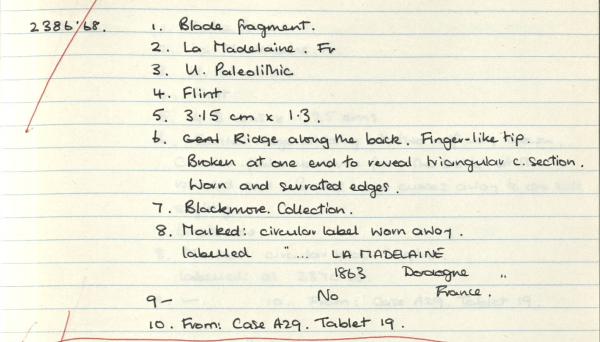 2386'68. 1. Blade fragment.
2. La Madelaine. Fr
3. U. Paleolithic
4. Flint
5. 3.15 cm x 1.3.
6. Ridge along the back. Finger-like tip.
Broken at one end to reveal triangular c. section.
Worn and serrated edges.
7. Blackmore Collection.
8. Marked: circular label worn away.
labelled " ... LA MADELAINE
1863 Dordogne "
No France.
9 -
10. From: Case A29. Tablet 19.